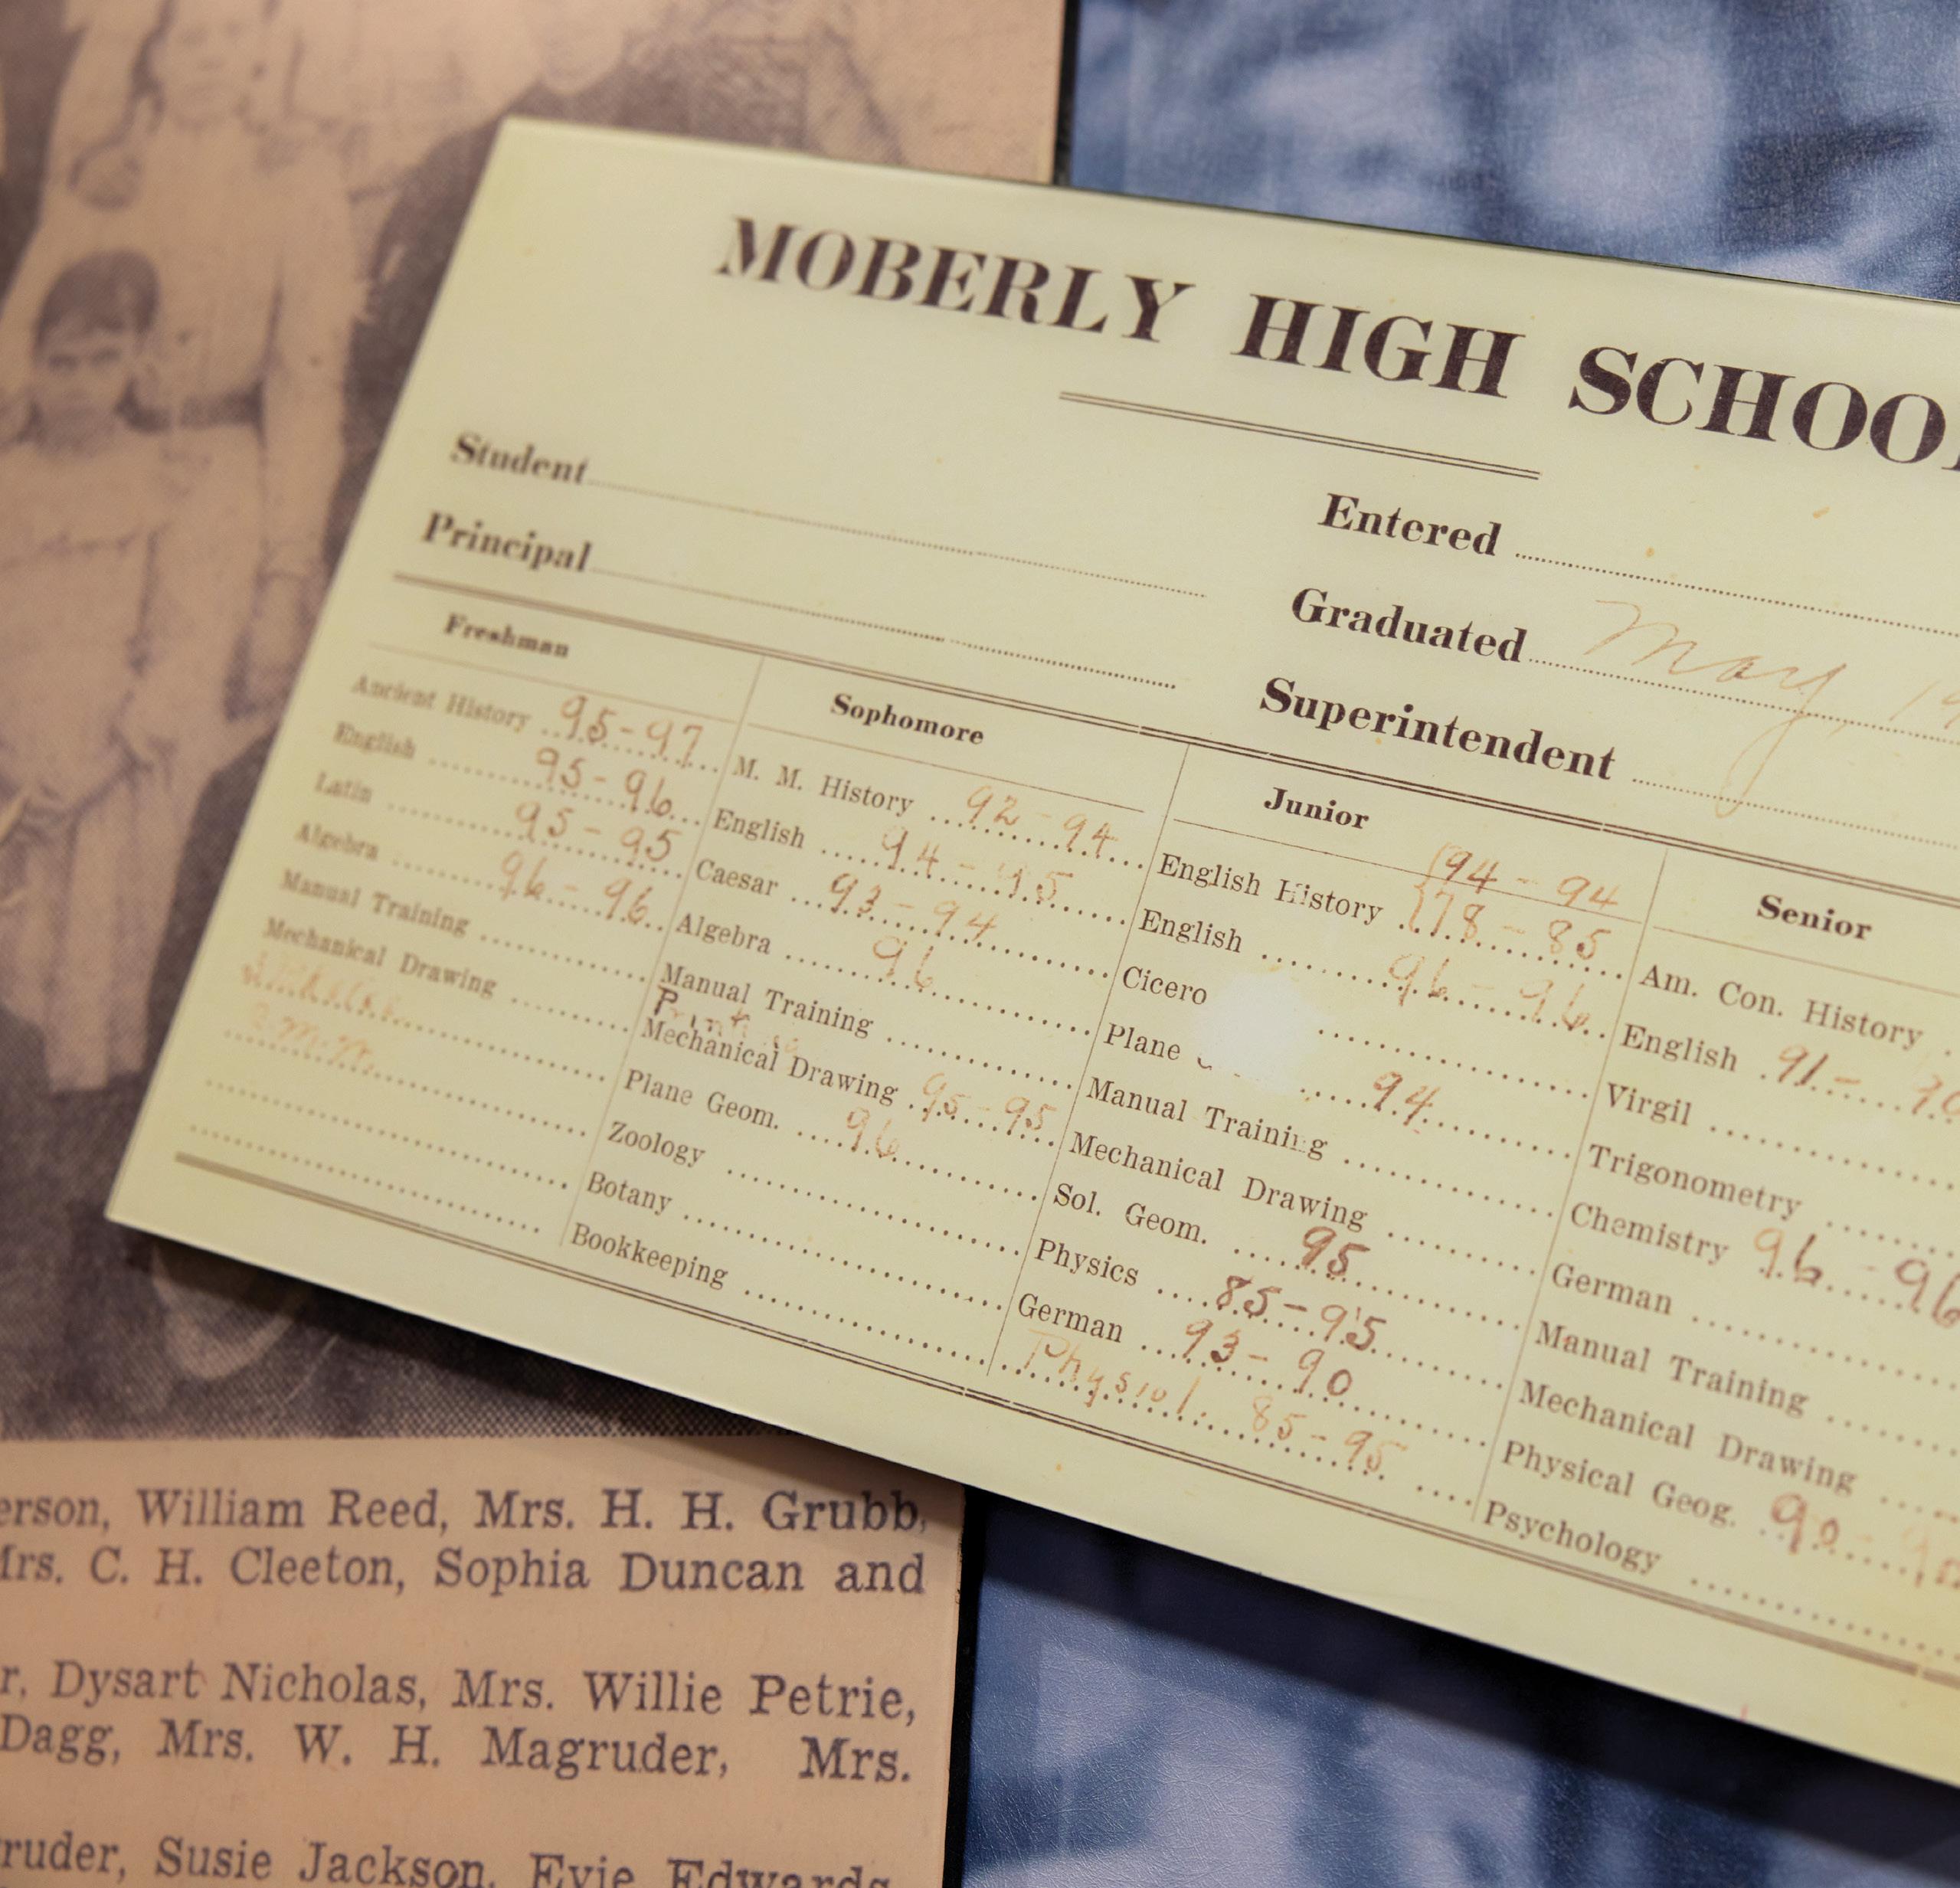 MOBERLY HIGH SCHOOL
Student
Principal
Entered
Graduated May, 19
Superintendent
Freshman
Ancient History 95-97
English 95-96
Latin 95-95
Algebra 96-96
Manual Training
Mechanical Drawing
Sophomore
M. M. History 92-94
English 94-95
Caesar 93-94
Algebra 96
Manual Training
Mechanical Drawing 95-95
Plane Geom. 96
Zoology
Botany
Bookkeeping
Junior
94-94
English History 78-85
English 96-96
Cicero
Plane 94
Manual Training
Mechanical Drawing
Sol. Geom. 95
Physics 85-95
German 93-90
Physiol. 85-95
Senior
Am. Con. History
English 91-
Virgil
Trigonometry
Chemistry 96-96
German
Manual Training
Mechanical Drawing
Physical Geog. 90-
Psychology
erson, William Reed, Mrs. H. H. Grubb,
Mrs. C. H. Cleeton, Sophia Duncan and
r, Dysart Nicholas, Mrs. Willie Petrie,
Dagg, Mrs. W. H. Magruder, Mrs.
ruder, Susie Jackson, Evie Edwards,